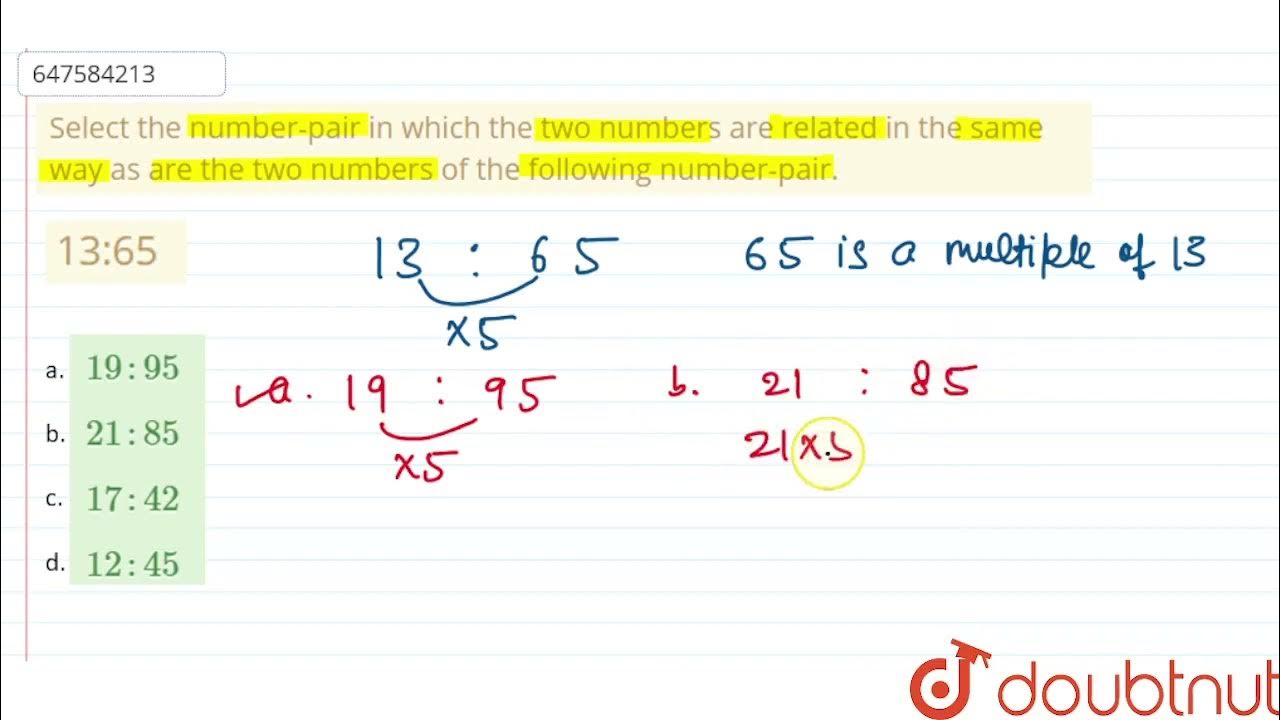 647584213
Select the number-pair in which the two numbers are related in the same
way as are the two numbers of the following number-pair.
13:65
13 : 65
65 is a multiple of 13
×5
a. 19:95
b. 21:85
c. 17:42
d. 12:45
a. 19 : 95
×5
b. 21 : 85
21×5
doubtnut